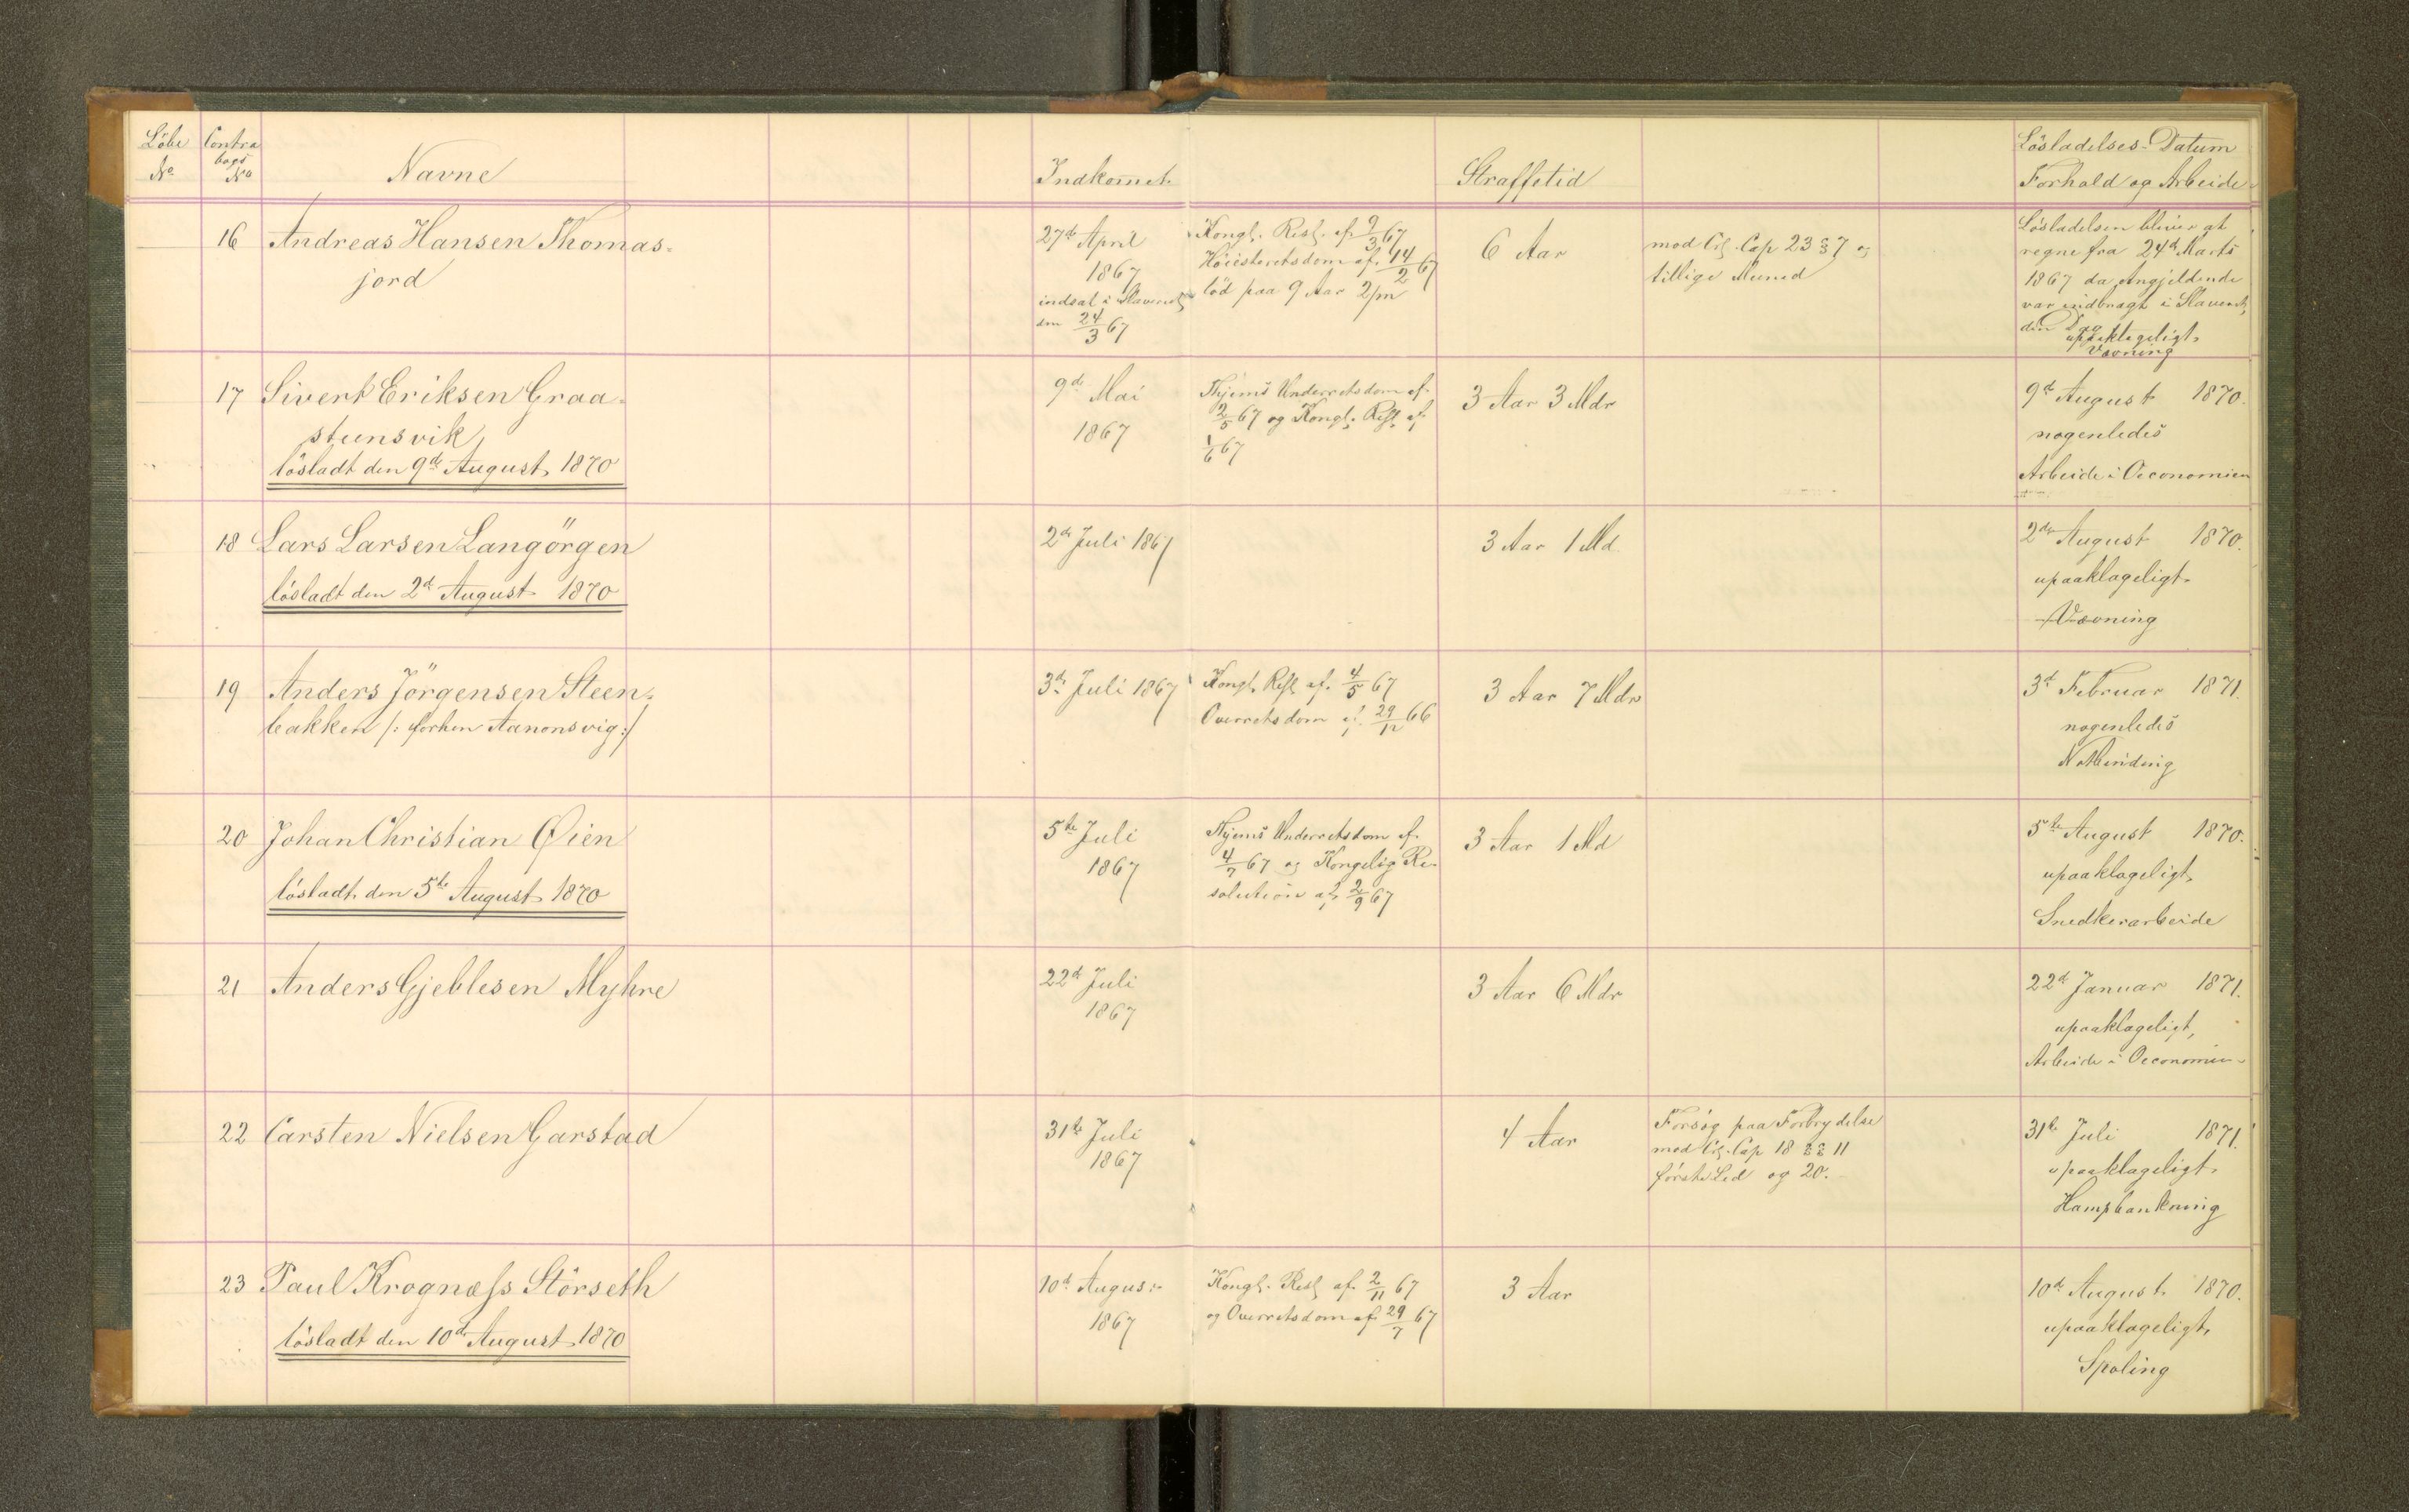 Löbe No
Contra bogs No
Navne
Indkommet
Straffetid
Lösladelses-Datum
Forhold og Arbeide
16 Andreas Hansen Thomas-
jord
27de April
1867
indsat i Slaveriet
den 24/3 67
Kongl. Resl. af 9/3 67
Höiesteretsdom af 14/2 67
löd paa 9 Aar 2/m
6 Aar
mod Crl. Cap 23 § 7 og
tillige Meened
Lösladelsen bliver at
regne fra 24de Marts
1867 da Angjeldende
var indbragt i Slaveriet
den Dag
upaaklageligt
Vævning
17 Sivert Eriksen Graa-
steensvik
lösladt den 9de August 1870
9de Mai
1867
Thjems Underretsdom af
2/5 67 og Kongl. Resl. af
1/6 67
3 Aar 3 Mdr
9de August 1870.
nogenledes
Arbeide i Oeconomien
18 Lars Larsen Langörgen
lösladt den 2d August 1870
2de Juli 1867
3 Aar 1 Md.
2den August 1870.
upaaklageligt
Vævning
19 Anders Jörgensen Steen-
bakken /: forhen Aanonsvig :/
3de Juli 1867
Kongl. Resl. af 4/5 67
Overretsdom af 29/12 66
3 Aar 7 Mdr
3d Februar 1871.
nogenledes
Notbinding
20 Johan Christian Øien
lösladt den 5te August 1870
5te Juli
1867
Thjems Underretsdom af
4/7 67 og Kongelig Re-
solution af 2/9 67
3 Aar 1 Md
5te August 1870.
upaaklageligt
Snedkerarbeide
21 Anders Gjeblesen Myhre
22d Juli
1867
3 Aar 6 Mdr
22d Januar 1871.
upaaklageligt,
Arbeide i Oeconomien
22 Carsten Nielsen Garstad
31te Juli
1867
4 Aar
Forsög paa Forbrydelse
mod Crl. Cap 18 §§ 11
förste Led og 20.
31te Juli 1871.
upaaklageligt
Hampbankning
23 Paul Krognæss Störseth
lösladt den 10de August 1870
10d August
1867
Kongl. Resl. af 2/11 67
og Overretsdom af 29/7 67
3 Aar
10de August 1870.
upaaklageligt,
Spoling